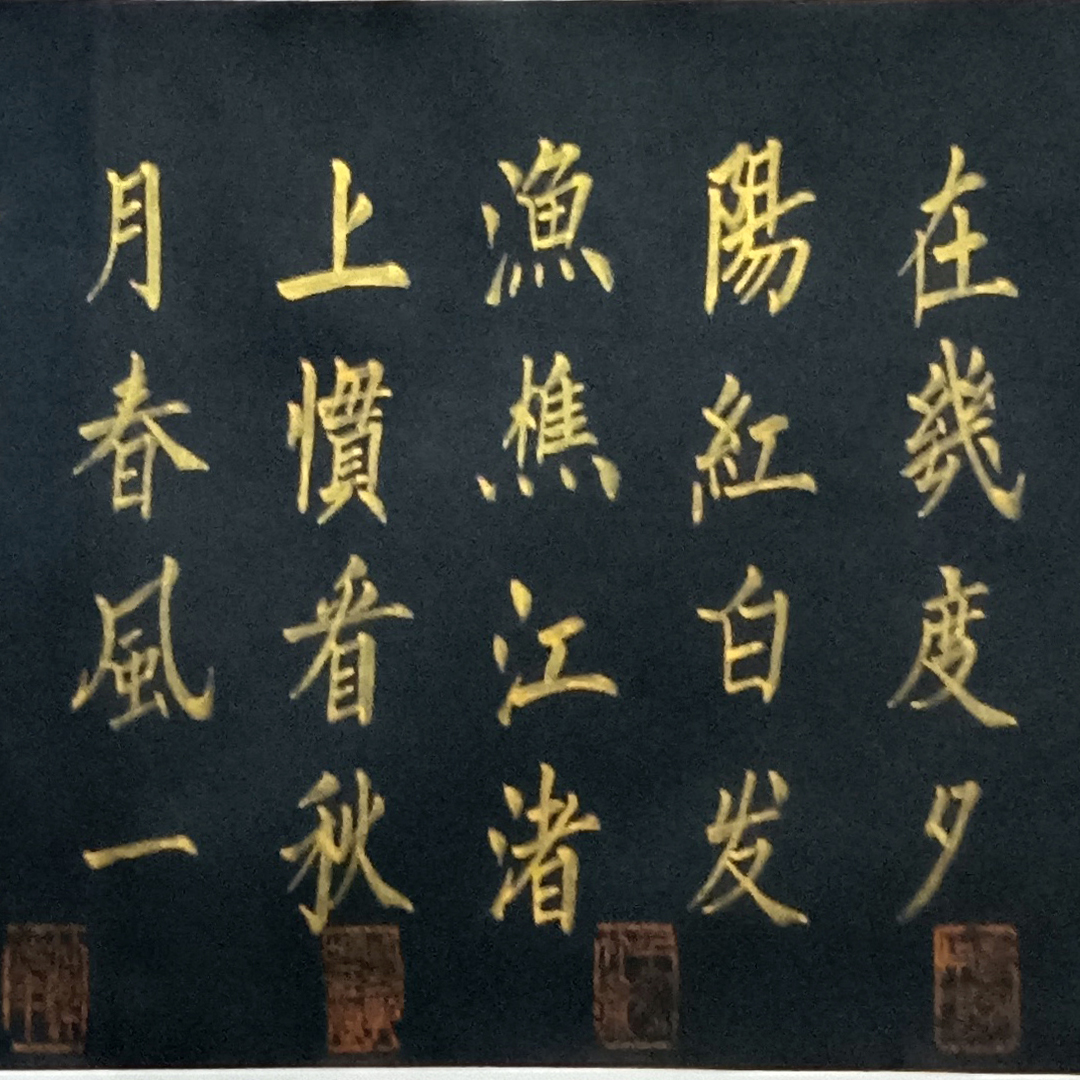 在幾度夕
陽紅白发
漁樵江渚
上慣看秋
月春風一